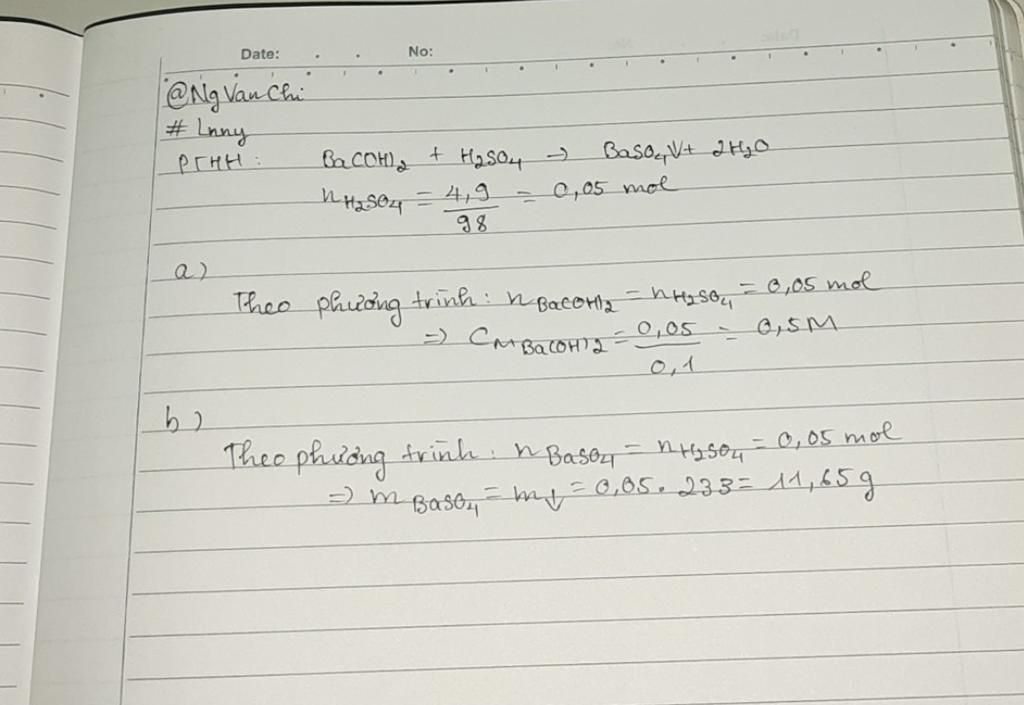 Date: No:
@NgVanChi
# Lnny
PTHH: Ba(OH)₂ + H₂SO₄ → BaSO₄↓ + 2H₂O
n H₂SO₄ = 4,9/98 = 0,05 mol
a)
Theo phương trình: n Ba(OH)₂ = n H₂SO₄ = 0,05 mol
=> C M Ba(OH)₂ = 0,05/0,1 = 0,5M
b)
Theo phương trình: n BaSO₄ = n H₂SO₄ = 0,05 mol
=> m BaSO₄ = m↓ = 0,05. 233 = 11,65g